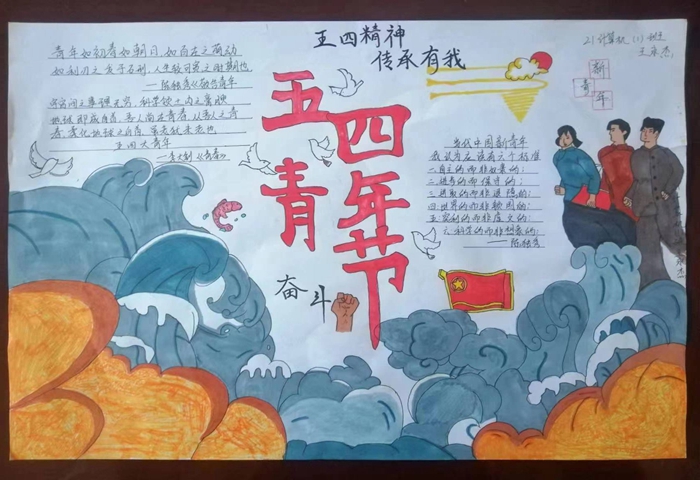 五四精神
传承有我
21计算机(1)班
新青年
青年如初春如朝日,如百卉之萌动
如利刃之发于石刑,人生最可宝之时期也
——陈独秀《敬告青年》
——李大钊《青春》
五四青年节
当代中国新青年
我认为应该有六个标准
一.自主的而非奴隶的;
二.进步的而非保守的;
三.进取的而非退隐的;
四.世界的而非锁国的;
五.实利的而非虚文的;
六.科学的而非想象的;
——陈独秀
奋斗